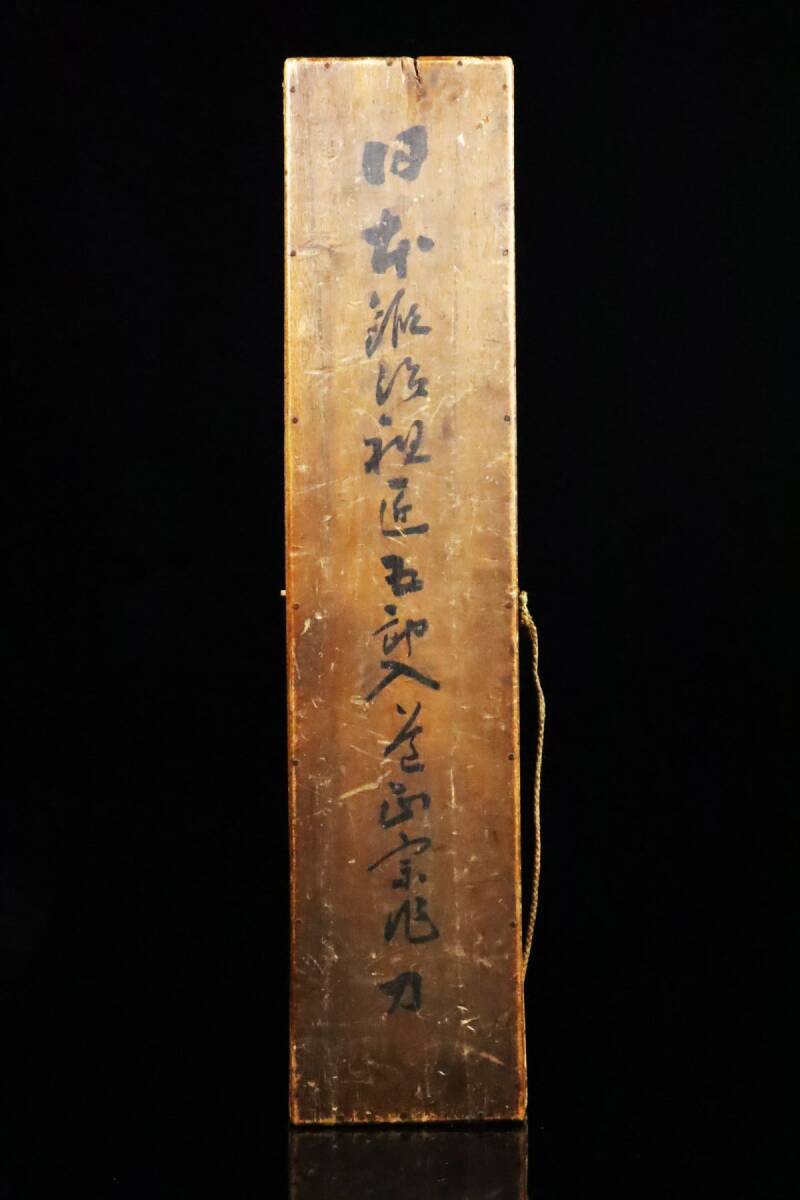 日本鍛冶祖匠五郎入道正宗作刀